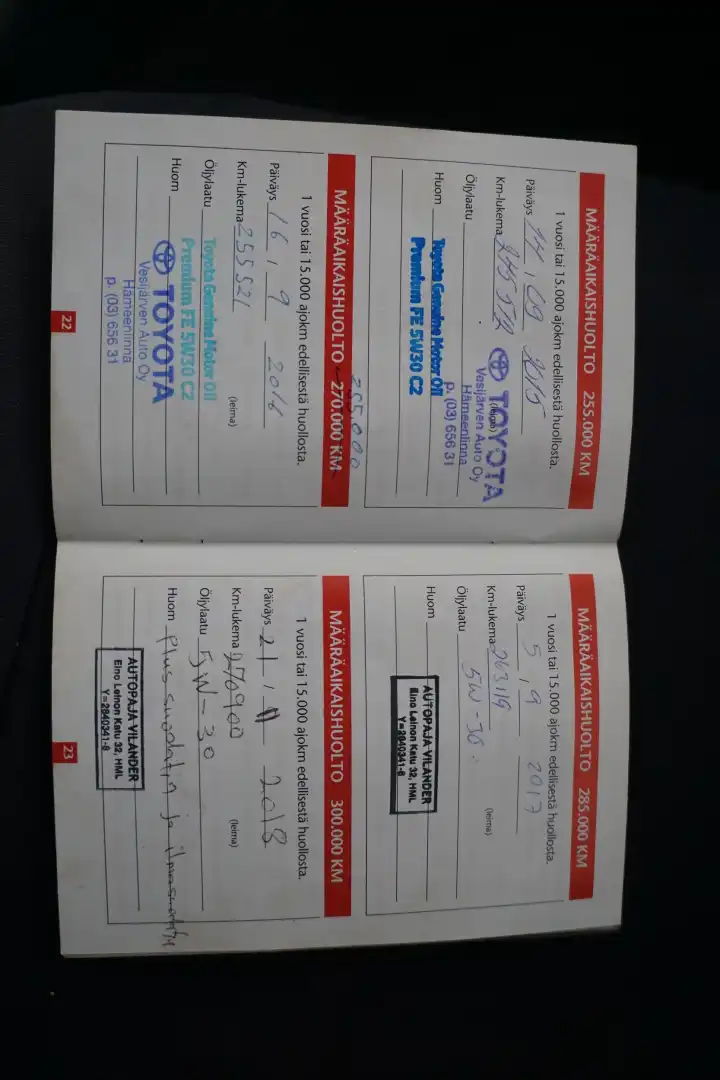 MÄÄRÄAIKAISHUOLTO 255.000 KM
1 vuosi tai 15.000 ajokm edellisestä huollosta.
Päiväys 11.09 2015
Km-lukema
(leima)
Öljylaatu
Huom Toyota Genuine Motor Oil
Premium FE 5W30 C2
TOYOTA
Vesijärven Auto Oy
Hämeenlinna
p. (03) 656 31
255.000
MÄÄRÄAIKAISHUOLTO 270.000 KM
1 vuosi tai 15.000 ajokm edellisestä huollosta.
Päiväys 16.9 2016
Km-lukema 255521
(leima)
Öljylaatu Toyota Genuine Motor Oil
Premium FE 5W30 C2
Huom
TOYOTA
Vesijärven Auto Oy
Hämeenlinna
p. (03) 656 31
22
MÄÄRÄAIKAISHUOLTO 285.000 KM
1 vuosi tai 15.000 ajokm edellisestä huollosta.
Päiväys 5.9 2017
Km-lukema 263119
(leima)
Öljylaatu 5W-30
Huom
AUTOPAJA VILANDER
Eino Leinon Katu 32, HML
Y=2840341-8
MÄÄRÄAIKAISHUOLTO 300.000 KM
1 vuosi tai 15.000 ajokm edellisestä huollosta.
Päiväys 21.11 2018
Km-lukema 270900
(leima)
Öljylaatu 5W-30
Huom Plus suodatin ja ilmasuodatin
AUTOPAJA VILANDER
Eino Leinon Katu 32, HML
Y=2840341-8
23